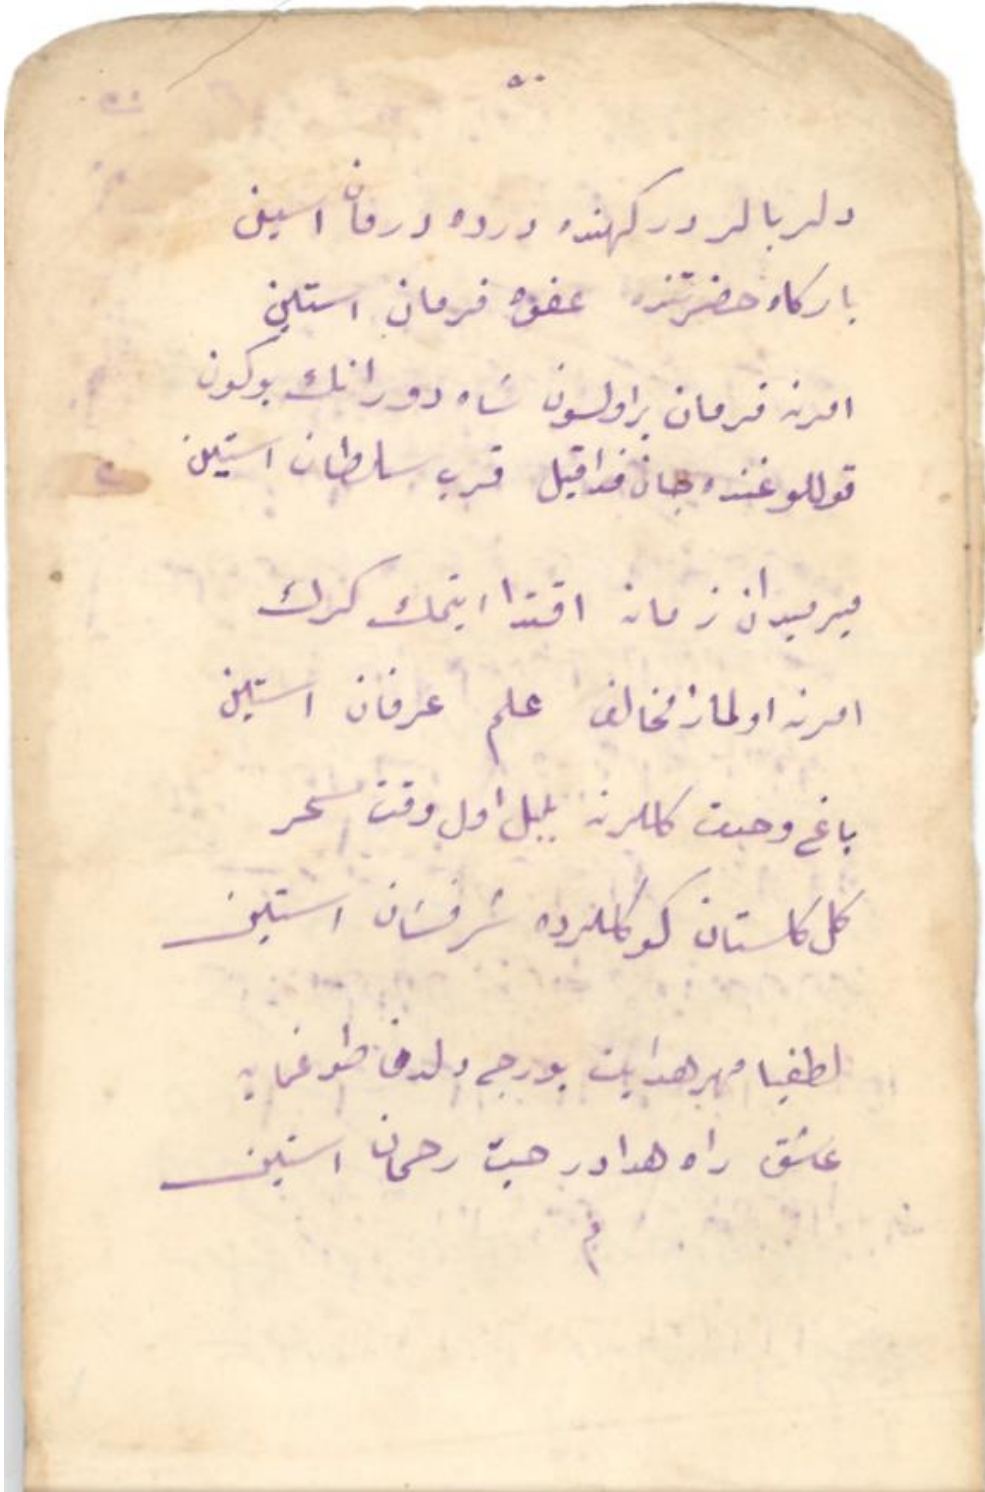 ٥٠
دلربالر درگهنده درده درمان استین
بارگاه حضرتنده عفوه فرمان استین
امرنه فرمان بر اولسون شاه دورانك بوگون
قوللوغنده جان فدا قیل قرب سلطان استین
میر میدان زمانه اقتدا ایتمك گرك
امرنه اولماز مخالف علم عرفان استین
باغ وحدت گللرنه بلبل اول وقت سحر
گل گلستان گللرده شرفشان استین
لطفیا مهر هدایت بورجی دلدن طوغمایه
عشق راه هدادر حب رحمان استین
م